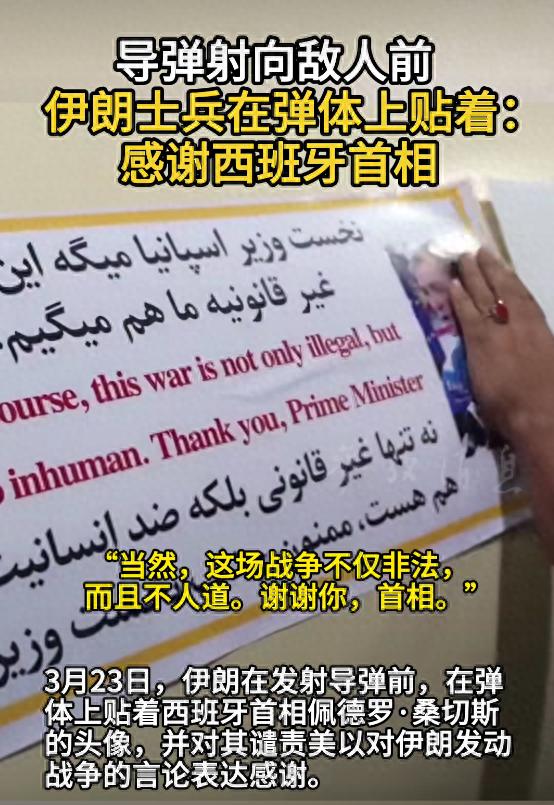 导弹射向敌人前
伊朗士兵在弹体上贴着：
感谢西班牙首相
نخست وزیر اسپانیا میگه این
غیر قانونیه ما هم میگیم
ourse, this war is not only illegal, but
inhuman. Thank you, Prime Minister
نه تنها غیر قانونی بلکه ضد انسانیت
هم هست، ممنون
وزیر
“当然，这场战争不仅非法，
而且不人道。谢谢你，首相。”
3月23日，伊朗在发射导弹前，在弹
体上贴着西班牙首相佩德罗·桑切斯
的头像，并对其谴责美以对伊朗发动
战争的言论表达感谢。